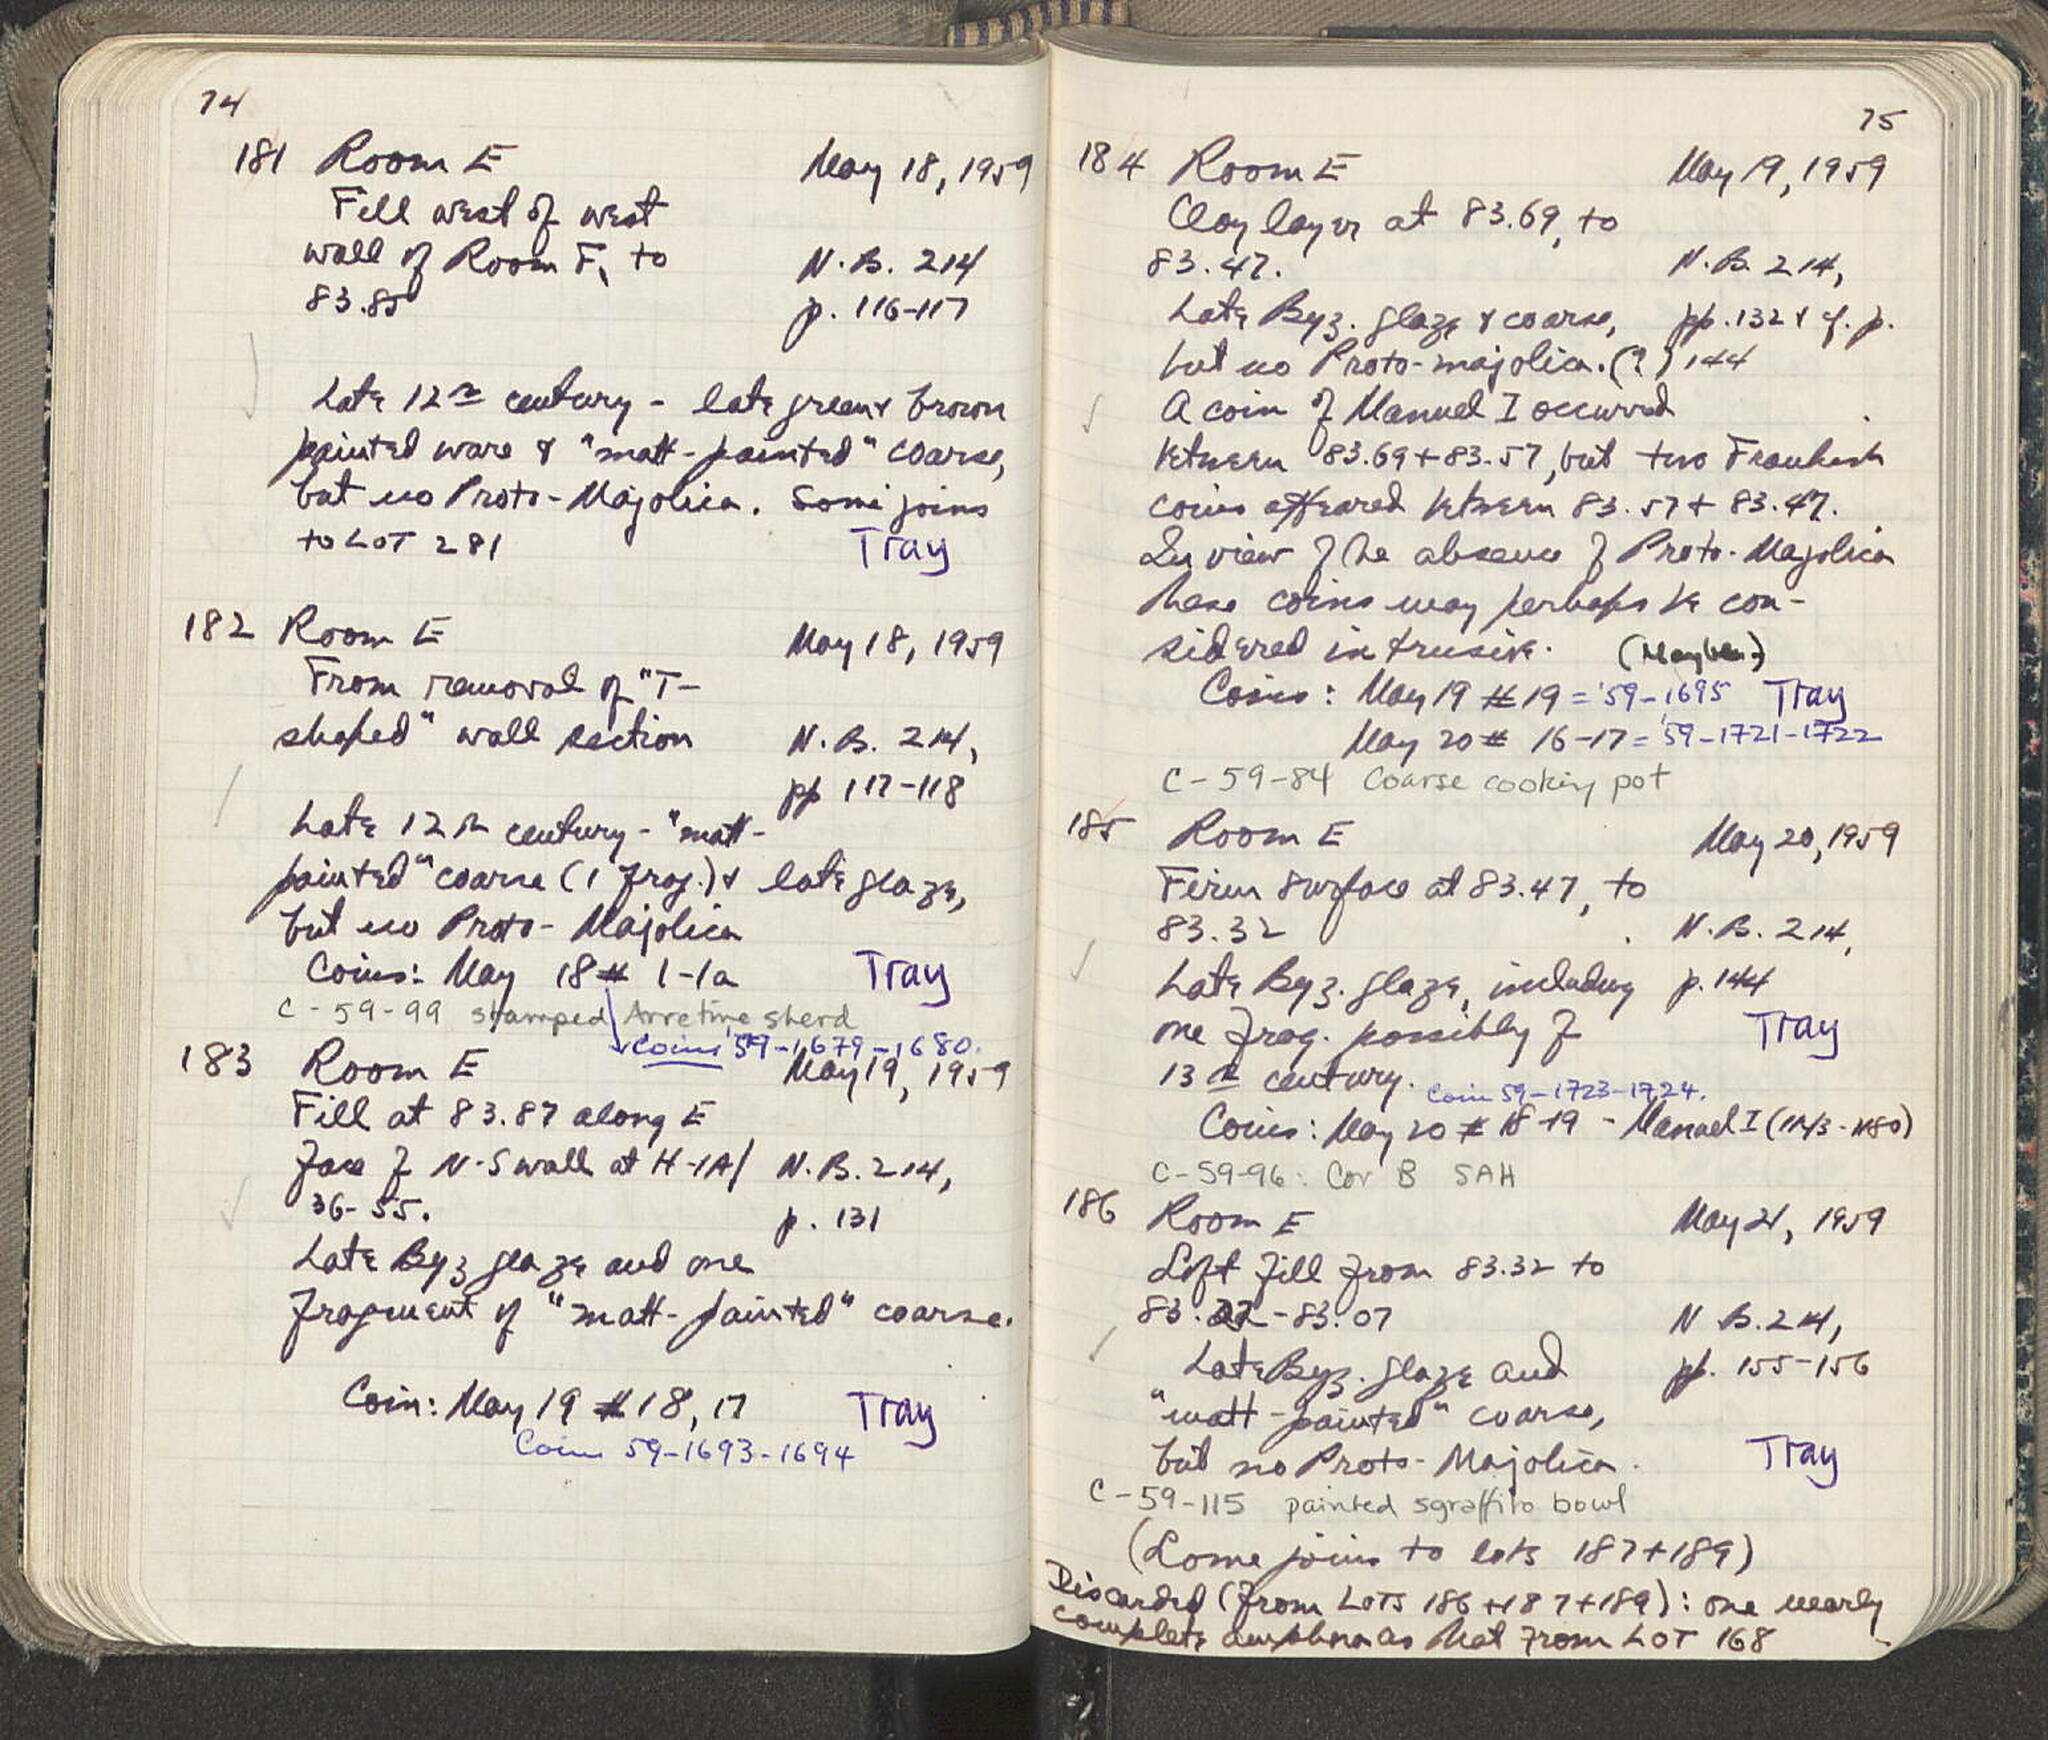 74
181 Room E May 18, 1959
Fill west of west
wall of Room F, to N.B. 214
83.85 p. 116-117
Late 12th century - late green & brown
painted ware & "matt-painted" coarse,
but no Proto-Majolica. Some joins
to LOT 281 Tray
182 Room E May 18, 1959
From removal of "T-
shaped" wall section N.B. 214,
pp 117-118
Late 12th century - "matt-
painted" coarse (1 frag.) & late glaze,
but no Proto-Majolica
Coins: May 18 # 1-1a Tray
C-59-99 stamped Arretine sherd
Coins '59-1679-1680.
183 Room E May 19, 1959
Fill at 83.87 along E
face of N-S wall at H-IA/ N.B. 214,
36-55. p. 131
Late Byz glaze and one
fragment of "matt-painted" coarse.
Coin: May 19 #18, 17 Tray
Coins 59-1693-1694
75
184 Room E May 19, 1959
Clay layer at 83.69, to
83.47. N.B. 214,
Late Byz. glaze & coarse, pp. 132 & cf. p.
but no Proto-majolica. (?) 144
A coin of Manuel I occurred
between 83.69 + 83.57, but two Frankish
coins appeared between 83.57 + 83.47.
In view of the absence of Proto-Majolica
these coins may perhaps be con-
sidered intrusive. (Maybe.)
Coins: May 19 # 19 = '59-1695 Tray
May 20 # 16-17 = '59-1721-1722
C-59-84 Coarse cooking pot
185 Room E May 20, 1959
Firm surface at 83.47, to
83.32 N.B. 214,
Late Byz. glaze, including p. 144
one frag. possibly of Tray
13th century. Coin 59-1723-1724.
Coins: May 20 # 18-19 - Manuel I (1143-1180)
C-59-96: Cor B SAH
186 Room E May 21, 1959
Soft fill from 83.32 to
83.22-83.07 N.B. 214,
Late Byz. glaze and pp. 155-156
"matt-painted" coarse,
but no Proto-Majolica. Tray
C-59-115 painted sgraffito bowl
(Some joins to lots 187+189)
Discarded (from LOTS 186+187+189): one nearly
complete amphora as that from LOT 168